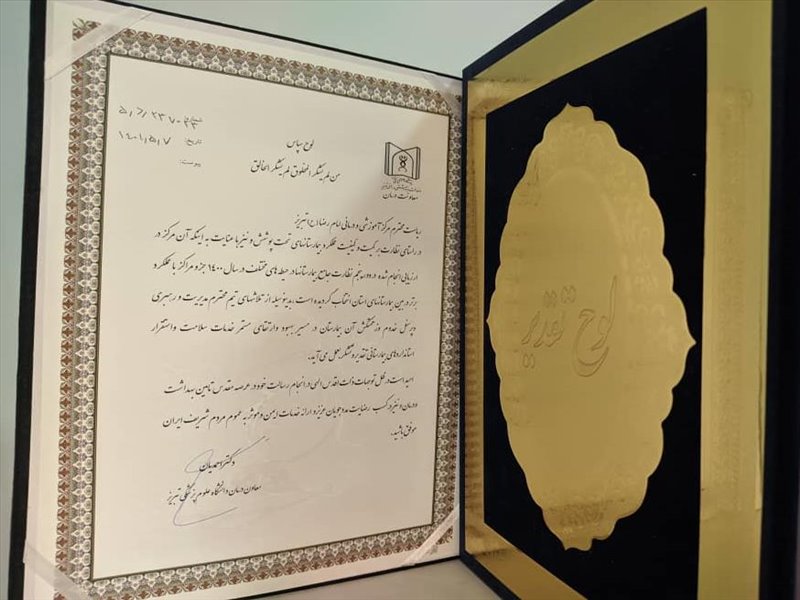 لوح سپاس
من لم یشکر المخلوق لم یشکر الخالق
شماره: ۵/د/۲۳۷۰۳۳
تاریخ: ۱۴۰۱/۵/۷
پیوست:
معاونت درمان
ریاست محترم مرکز آموزشی و درمانی امام رضا (ع) تبریز
در راستای نظارت بر کمیت و کیفیت عملکرد بیمارستانهای تحت پوشش و نیز با عنایت به اینکه آن مرکز در
ارزیابی انجام شده در دور پنجم نظارت جامع بیمارستانها در حیطه های مختلف در سال ۱۴۰۰ جزو مراکز با عملکرد
برتر در بین بیمارستانهای استان انتخاب گردیده است، بدینوسیله از تلاشهای تیم محترم مدیریت و رهبری
و پرسنل خدوم و زحمتکش آن بیمارستان در مسیر بهبود و ارتقای مستمر خدمات سلامت و استقرار
استانداردهای بیمارستانی تقدیر و تشکر بعمل می آید.
امید است در ظل توجهات ذات اقدس الهی در انجام رسالت خود در عرصه مقدس تامین بهداشت
و درمان و نیز در کسب رضایت مددجویان عزیز و ارائه خدمات ایمن و موثر به عموم مردم شریف ایران
موفق باشید.
دکتر احمدیان
معاون درمان دانشگاه علوم پزشکی تبریز
لوح تقدیر